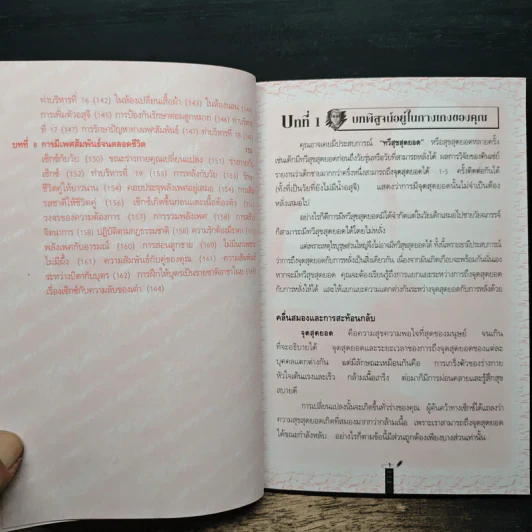 ท่าบริหารที่ 16 (142) ในห้องเปลี่ยนเสื้อผ้า (143) ในห้องนอน
การเติมตัวอสุจิ (145) การป้องกันรักษาต่อมลูกหมาก (146) ท่าบริหาร
ที่ 17 (147) การรักษาปัญหาทางเพศสัมพันธ์ ท่าบริหารที่ 18
บทที่ 8 การมีเพศสัมพันธ์จนตลอดชีวิต
เซ็กซ์กับวัย (150) ขณะร่างกายคุณเปลี่ยนแปลง (151) ร่างกายกับ
เซ็กซ์ (152) ท่าบริหารที่ 19 (153) การหลั่งกับวัย (153)
ชีวิตคู่ให้ยาวนาน (154) ตอบประจุพลังเพศอยู่เสมอ (154) การเติม
รสชาติให้ชีวิตคู่ (156) เซ็กซ์เกิดขึ้นก่อนและเนื้อต้องตัว (156)
วงจรของความต้องการ (157) การรวมพลังเพศ (158) การสร้าง
จิตนาการ (158) ปฏิบัติตามกฎธรรมชาติ (158) ความรักต้องมีเมตตา
พลังเพศกับอารมณ์ (160) การสอนลูกชาย (160) ไม่มีใน
ไม่มีผึ้ง (161) ความสัมพันธ์กับคู่ของคุณ (161) ความสัมพันธ์
ระหว่างบิดากับบุตร (162) การฝึกให้บุตรเป็นชายชาติอาชาไนย
เรื่องเซ็กซ์กับความลับของเต๋า (164)
บทที่ 1 บทพิสูจน์อยู่ในกางเกงของคุณ
คุณอาจเคยมีประสบการณ์ "ทวีสุขสุดยอด" หรือสุขสุดยอดหลายครั้ง
เช่นเด็กมีทวีสุขสุดยอดก่อนถึงวัยรุ่นหรือวัยที่สามารถหลั่งได้ ผลการวิจัยของคินเซย์
รายงานว่าเด็กชายมากกว่าครึ่งหนึ่งสามารถถึงจุดสุดยอดได้ 1-5 ครั้งติดต่อกันได้
(ทั้งที่เป็นวัยที่ยังไม่มีน้ำอสุจิ) แสดงว่าการมีจุดสุดยอดนั้นไม่จำเป็นต้อง
หลั่งเสมอไป
อย่างไรก็ดีการมีทวีสุขสุดยอดมิได้จำกัดแต่ในวัยเด็กเสมอไปชายวัยฉกรรจ์
ก็สามารถมีทวีสุขสุดยอดได้โดยไม่หลั่ง
แต่เพราะเหตุใดบุรุษส่วนใหญ่จึงไม่อาจมีทวีสุขสุดยอดได้ ทั้งนี้เพราะเขามีประสบการณ์
ว่าการถึงจุดสุดยอดกับการหลั่งเป็นสิ่งเดียวกัน เนื่องจากมันเกิดเกือบจะพร้อมกันนั่นเอง
หากจะมีทวีสุขสุดยอด คุณจะต้องเรียนรู้ถึงการแยกแยะระหว่างการถึงจุดสุดยอด
กับการหลั่งให้ได้ และให้แยกแยะความแตกต่างกันระหว่างจุดสุดยอดกับการหลั่งด้วย
คลื่นสมองและการสะท้อนกลับ
จุดสุดยอด คือความสุขความพอใจที่สุดของมนุษย์ จนเกิน
ที่จะอธิบายได้ จุดสุดยอดและระยะเวลาของการถึงจุดสุดยอดของแต่ละ
บุคคลแตกต่างกัน แต่มีลักษณะเหมือนกันคือ การเกร็งตัวของร่างกาย
หัวใจเต้นแรงและเร็ว กล้ามเนื้อเกร็ง ต่อมาก็มีการผ่อนคลายและรู้สึกสุข
สบายดี
การเปลี่ยนแปลงนั้นจะเกิดขึ้นทั่วร่างของคุณ ผู้ค้นคว้าทางเซ็กซ์ได้แถลงว่า
ความสุขสุดยอดเกิดที่สมองมากกว่ากล้ามเนื้อ เพราะเราสามารถถึงจุดสุดยอด
ได้ขณะกำลังหลับ อย่างไรก็ตามข้อนี้มีส่วนถูกต้องเพียงบางส่วนเท่านั้น